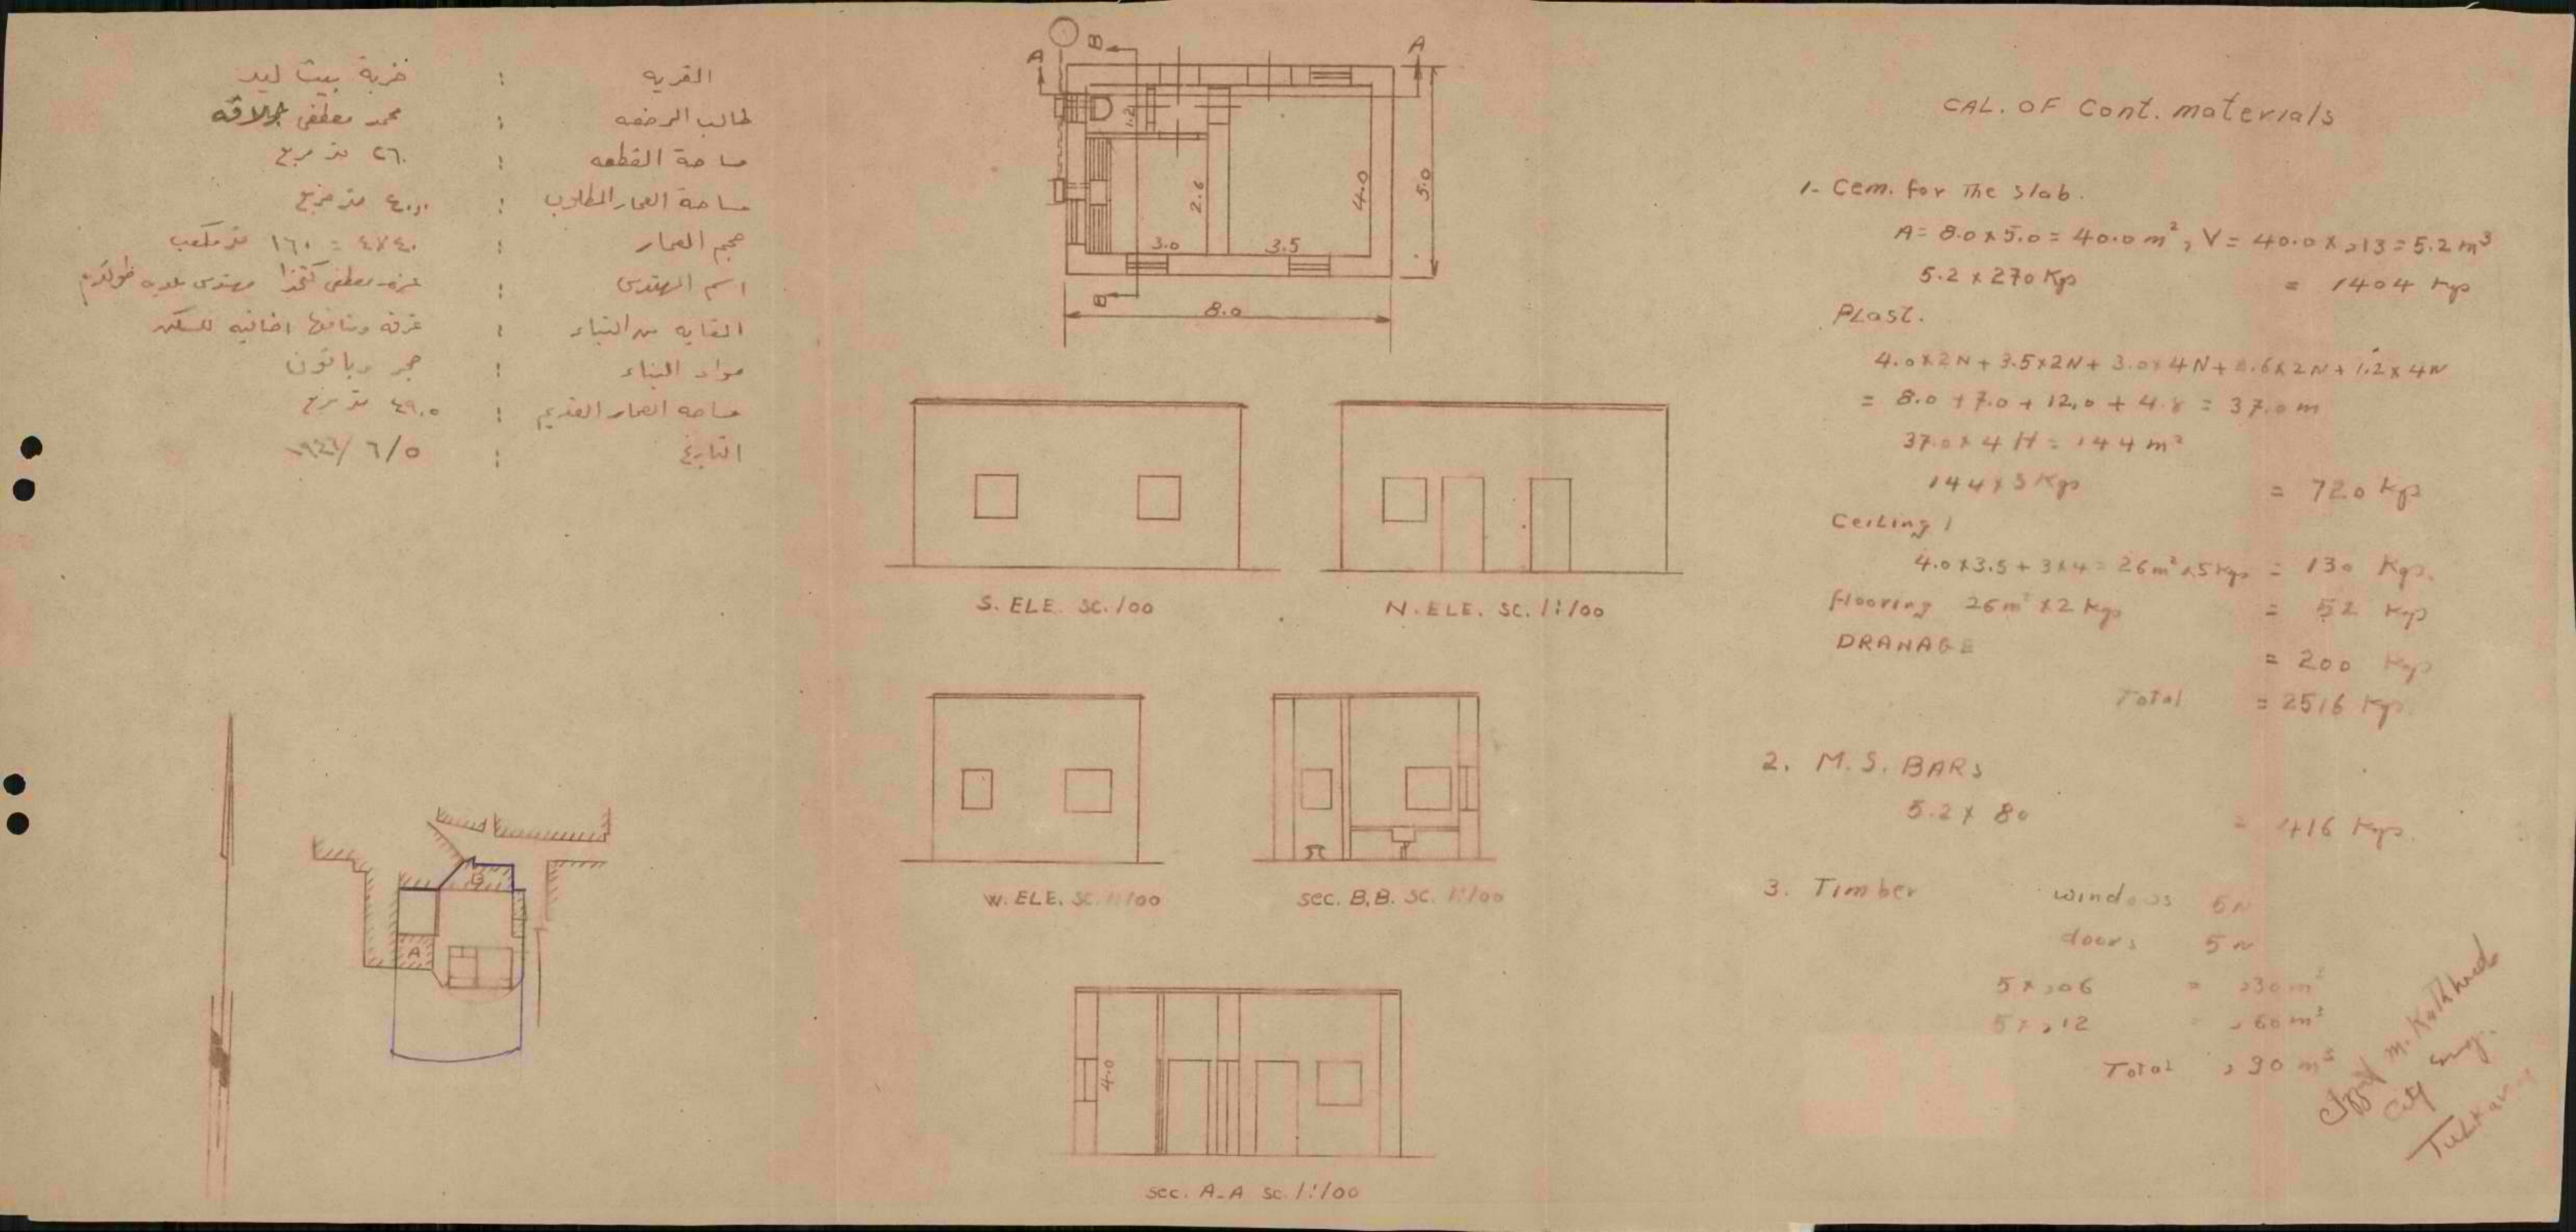 القريه : خربة بيت ليد
طالب الرخصه : محمد مصطفى
مساحة القطعه : ٢٦٠ متر مربع
مساحة العمار المطلوب : ٤٠,٠ متر مربع
حجم العمار : ٤٠x٤ = ١٦٠ متر مكعب
اسم المهندس : عزت مصطفى كتخدا مهندس بلديه طولكرم
الغايه من البناء : غرفه ومنافعها اضافيه للسكن
مواد البناء : حجر وباتون
مساحه العمار القديم : ٤٩,٥ متر مربع
التاريخ : ٥/٦/
B
A
A
B
1.2
2.6
4.0
5.0
3.0
3.5
8.0
S. ELE. SC. 100
N. ELE. SC. 1:100
W. ELE. SC. 1:100
Sec. B.B. SC. 1:100
4.0
Sec. A-A SC. 1:100
B
A
CAL. OF Cont. materials
1- Cem. for The slab.
A = 8.0 x 5.0 = 40.0 m², V = 40.0 x ,13 = 5.2 m³
5.2 x 270 Kgs = 1404 Kgs
PLast.
4.0x2N + 3.5x2N + 3.0x4N + 2.6x2N + 1.2x4N
= 8.0 + 7.0 + 12.0 + 4.8 = 37.0 m
37.0 x 4 H = 144 m²
144 x 5 Kgs = 720 Kgs
Ceiling
4.0 x 3.5 + 3x4 = 26 m² x 5 Kgs = 130 Kgs.
flooring 26 m² x 2 Kgs = 52 Kgs
DRANAGE = 200 Kgs
Total = 2516 Kgs
2. M. S. BARS
5.2 x 80 = 416 Kgs.
3. Timber windows 5 N
doors 5 N
5 x ,06 = ,30 m³
5 x ,12 = ,60 m³
Total ,90 m³
m. Katkhuda
City Eng.
Tulkarm